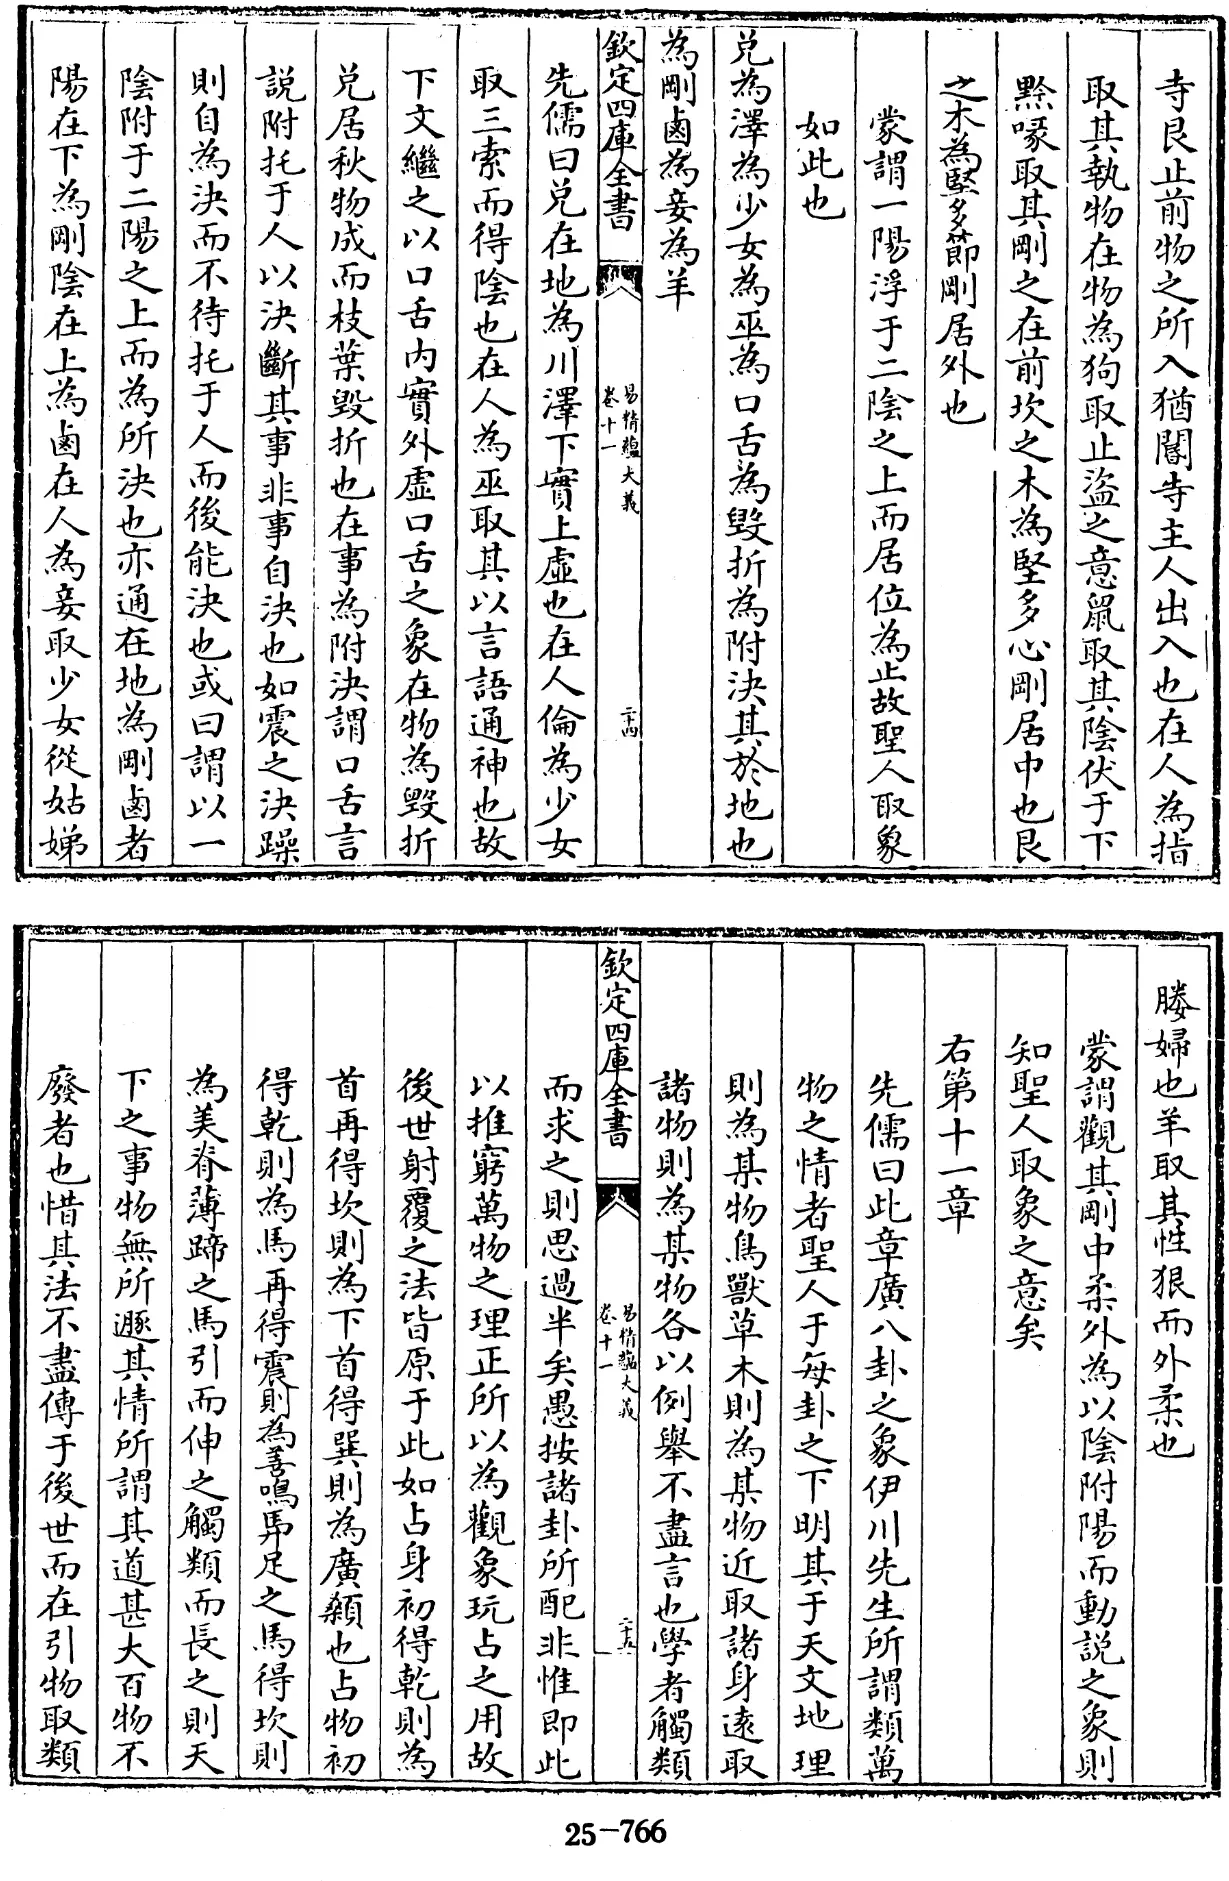 寺艮止前物之所入猶閽寺主人出入也在人為指
取其執物在物為狗取止盜之意鼠取其陰伏于下
黔喙取其剛之在前坎之木為堅多心剛居中也艮
之木為堅多節剛居外也
蒙謂一陽浮于二陰之上而居位為止故聖人取象
如此也
兌為澤為少女為巫為口舌為毀折為附決其於地也
為剛鹵為妾為羊
欽定四庫全書
易精蘊大義
卷十一
二十四
先儒曰兌在地為川澤下實上虛也在人倫為少女
取三索而得陰也在人為巫取其以言語通神也故
下文繼之以口舌內實外虛口舌之象在物為毀折
兌居秋物成而枝葉毀折也在事為附決謂口舌言
説附托于人以決斷其事非事自決也如震之決躁
則自為決而不待托于人而後能決也或曰謂以一
陰附于二陽之上而為所決也亦通在地為剛鹵者
陽在下為剛陰在上為鹵在人為妾取少女從姑娣
媵婦也羊取其性狠而外柔也
蒙謂觀其剛中柔外為以陰附陽而動説之象則
知聖人取象之意矣
右第十一章
先儒曰此章廣八卦之象伊川先生所謂類萬
物之情者聖人于每卦之下明其于天文地理
則為某物鳥獸草木則為某物近取諸身遠取
諸物則為某物各以例舉不盡言也學者觸類
欽定四庫全書
易精蘊大義
卷十一
二十五
而求之則思過半矣愚按諸卦所配非惟即此
以推窮萬物之理正所以為觀象玩占之用故
後世射覆之法皆原于此如占身初得乾則為
首再得坎則為下首得巽則為廣顙也占物初
得乾則為馬再得震則為善鳴馵足之馬得坎則
為美脊薄蹄之馬引而伸之觸類而長之則天
下之事物無所遯其情所謂其道甚大百物不
廢者也惜其法不盡傳于後世而在引物取類
25-766